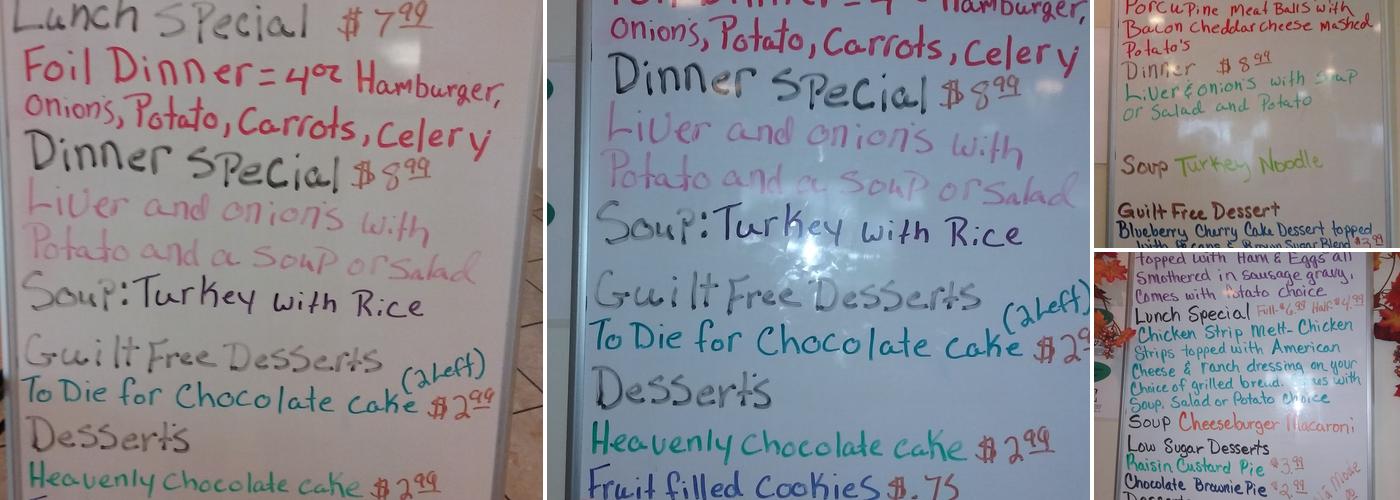 Lunch Special $7.99
Foil Dinner = 4oz Hamburger,
Onion's, Potato, Carrots, Celery
Dinner Special $8.99
Liver and onion's with
Potato and a soup or salad
Soup: Turkey with Rice
Guilt Free Desserts
(2 Left)
To Die for Chocolate cake $2.99
Dessert's
Heavenly Chocolate cake $2.99
Hamburger,
Onion's, Potato, Carrots, Celery
Dinner Special $8.99
Liver and onion's with
Potato and a soup or salad
Soup: Turkey with Rice
Guilt Free Desserts
(2 Left)
To Die for Chocolate cake $2.9
Dessert's
Heavenly Chocolate cake $2.99
Fruit filled Cookies $.75
Porcupine Meat Balls with
Bacon Cheddar cheese mashed
Potato's
Dinner $8.99
Liver & onion's with soup
or Salad and Potato
Soup Turkey Noodle
Guilt Free Dessert
Blueberry Cherry Cake Dessert topped
with Pecans & Brown Sugar Blend $3.99
topped with Ham & Eggs all
Smothered in sausage gravy,
Comes with Potato choice
Lunch Special Full-$6.99 Half-$4.99
Chicken Strip Melt- Chicken
Strips topped with American
Cheese & ranch dressing on your
Choice of grilled bread. with
Soup, Salad or Potato Choice
Soup Cheeseburger Macaroni
Low Sugar Desserts
Raisin Custard Pie $3.99
Chocolate Brownie Pie $2.99